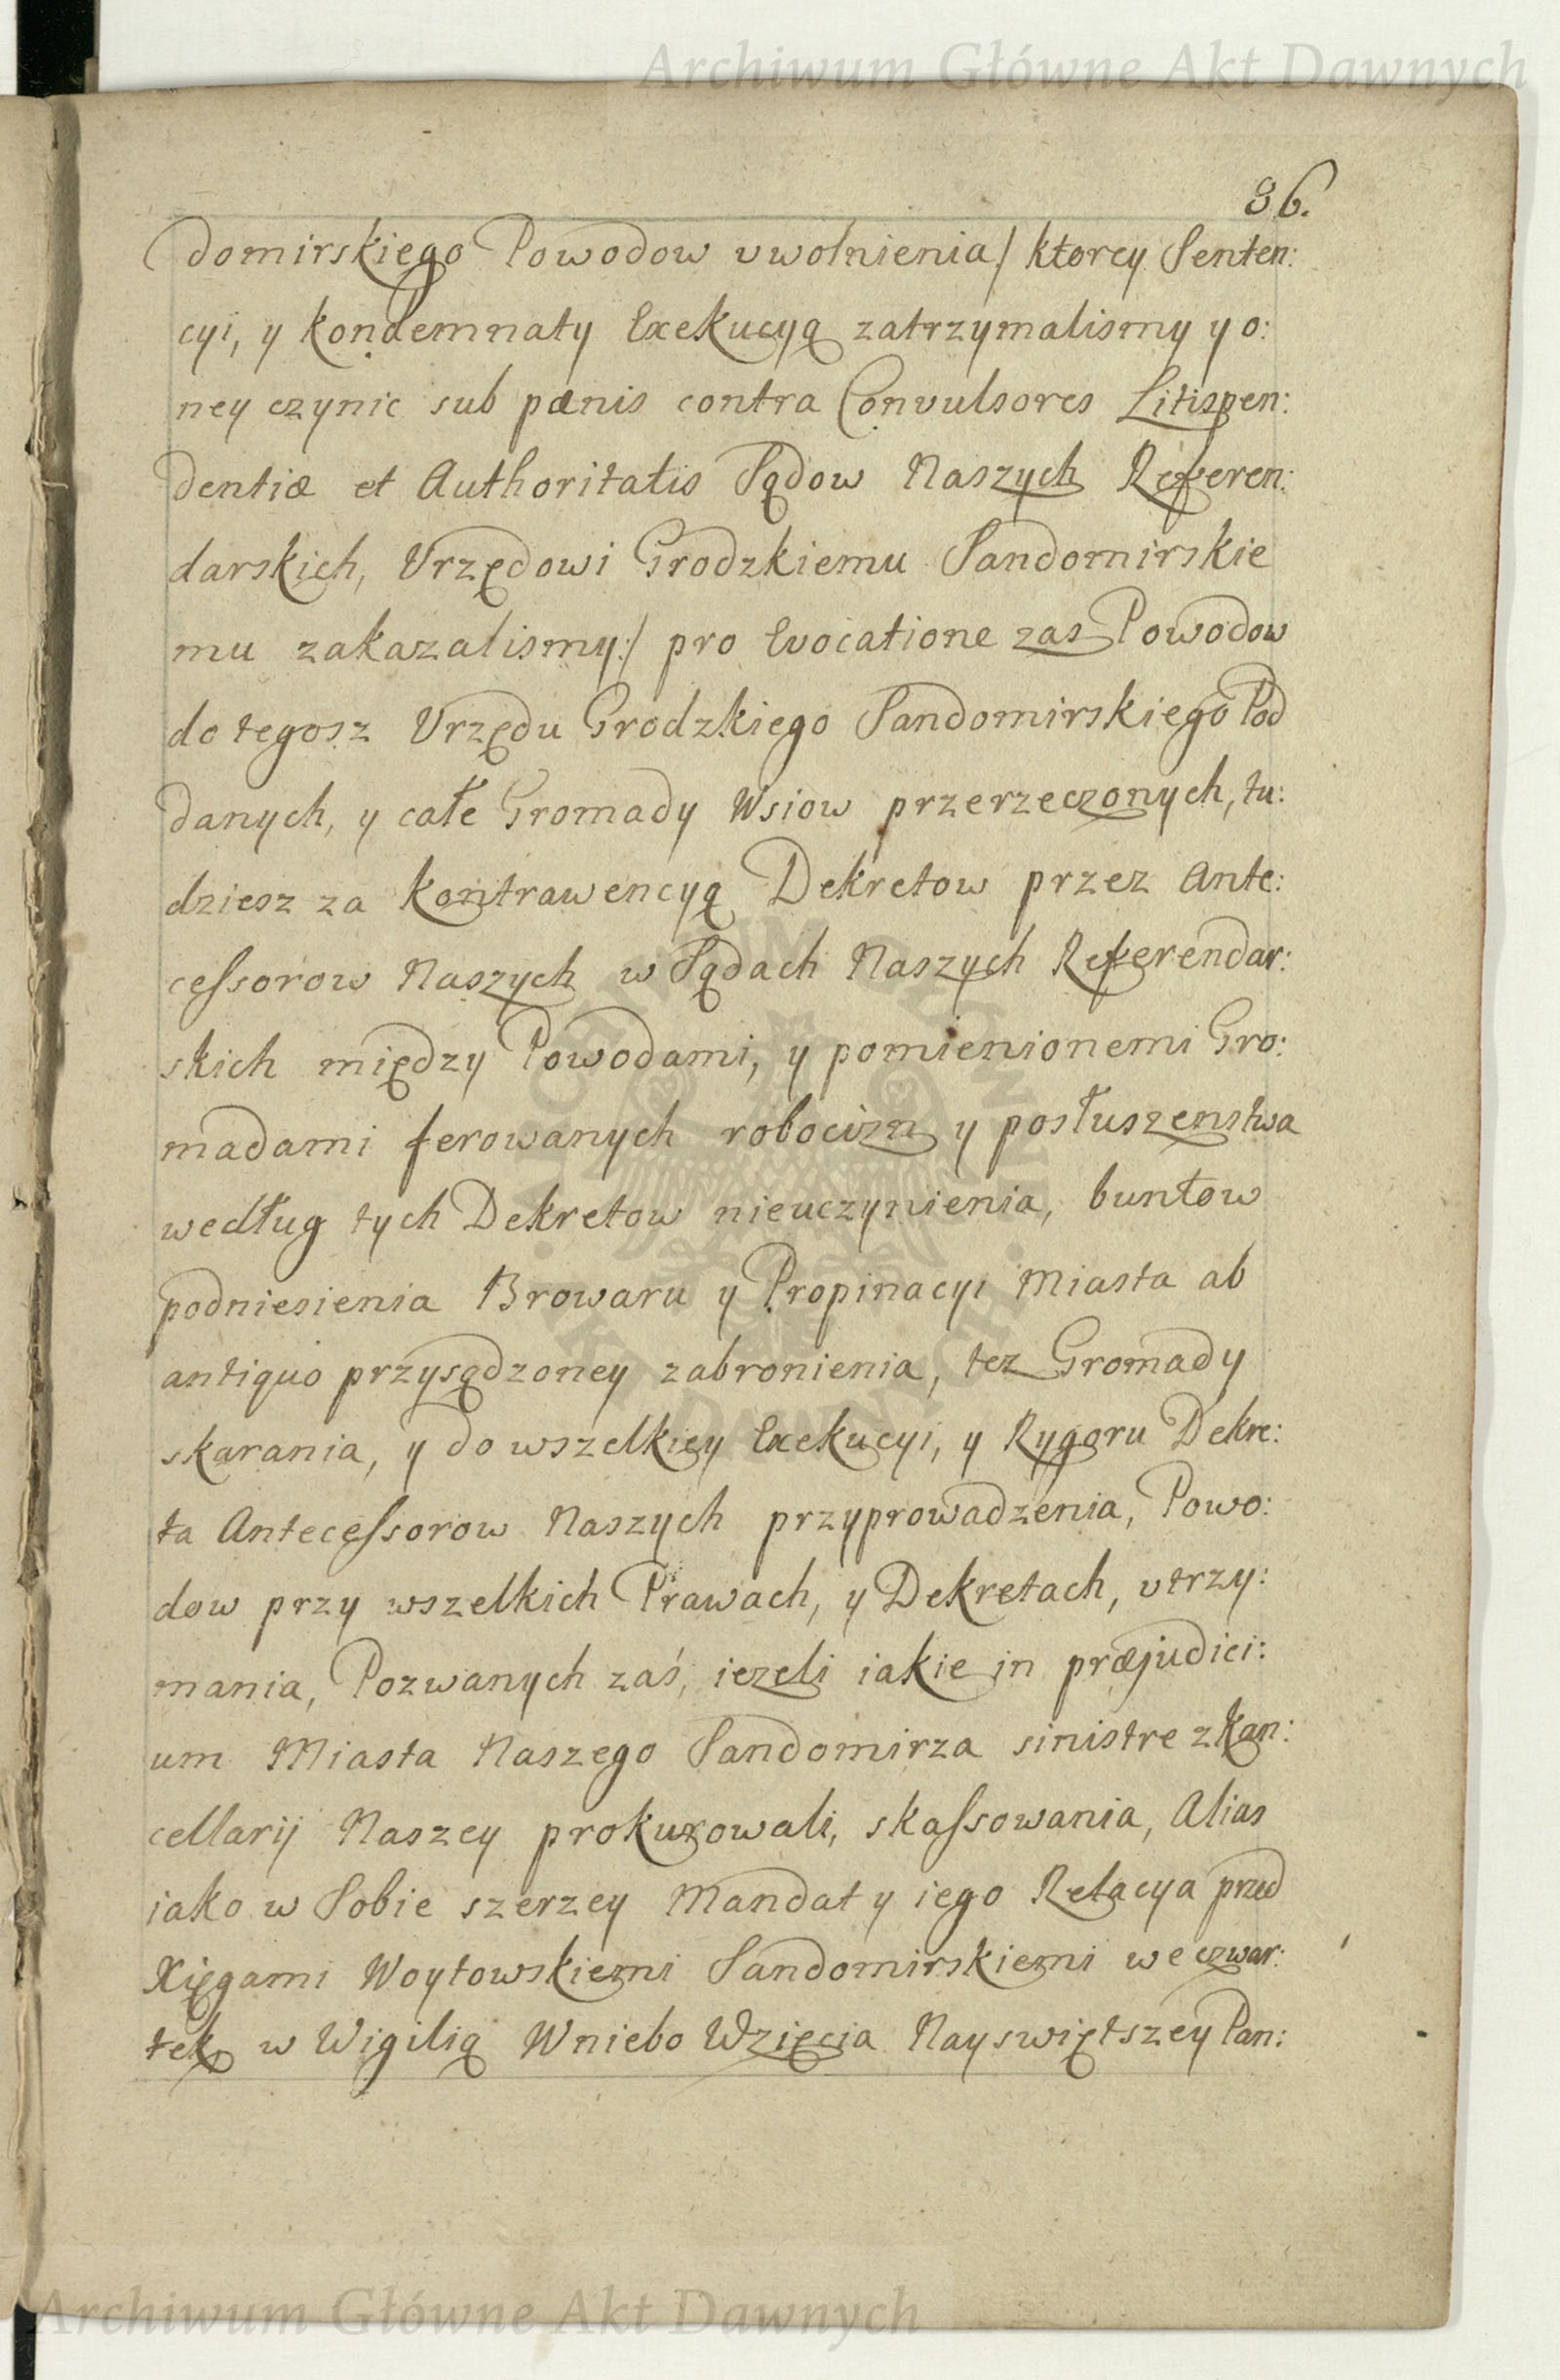 Archiwum Główne Akt Dawnych
86.
domirskiego Powodow uwolnienia/ ktorey Senten:
cyi, y kondemnaty Exekucyą zatrzymalismy y o:
ney czynic sub pænis contra Convulsores Litispen:
dentiæ et Authoritatis Sądow Naszych Referen:
darskich, Vrzędowi Grodzkiemu Sandomirskie
mu zakazalismy:/ pro Evocatione zas Powodow
do tegosz Vrzędu Grodzkiego Sandomirskiego Pod
danych, y całe Gromady Wsiow przerzeczonych, tu:
dziesz za kontrawencyą Dekretow przez Ante:
cessorow Naszych w Sądach Naszych Referendar:
skich między Powodami, y pomienionemi Gro:
madami ferowanych robocizn y posłuszenstwa
według tych Dekretow nieuczynienia, buntow
podniesienia Browaru y Propinacyi Miasta ab
antiquo przysądzoney zabronienia, tez Gromady
skarania, y do wszelkiey Exekucyi, y Rygoru Dekre:
ta Antecessorow Naszych przyprowadzenia, Powo:
dow przy wszelkich Prawach, y Dekretach, utrzy:
mania, Pozwanych zaś, iezeli iakie in præjudici:
um Miasta Naszego Sandomirza sinistre z kan:
cellarij Naszey prokurowali, skassowania, Alias
iako w Sobie szerzey Mandat y iego Relacya przed
Xięgami Woytowskiemi Sandomirskiemi we czwar:
tek w Wigilią Wniebo Wzięcia Nayswiętszey Pan:
Archiwum Główne Akt Dawnych